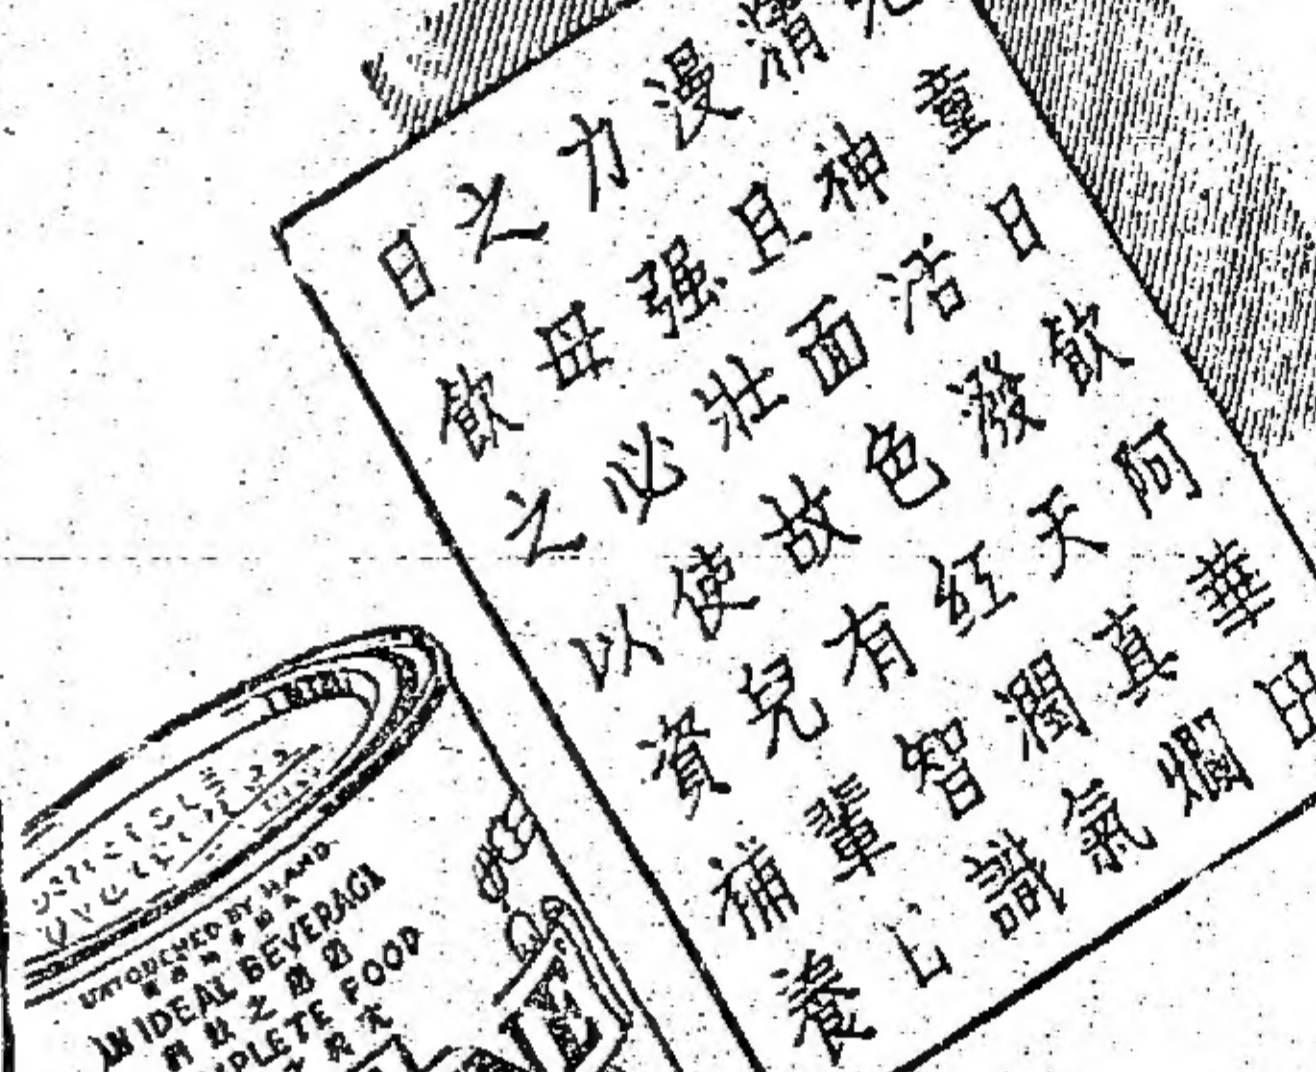 兒童日飲阿華田
精神活潑天真爛
漫且面色紅潤氣
力强壯故有智識
之母必使兒輩上
日飲之以資補養
UNTOUCHED BY HAND
AN IDEAL BEVERAGE
之
PLETE FOOD